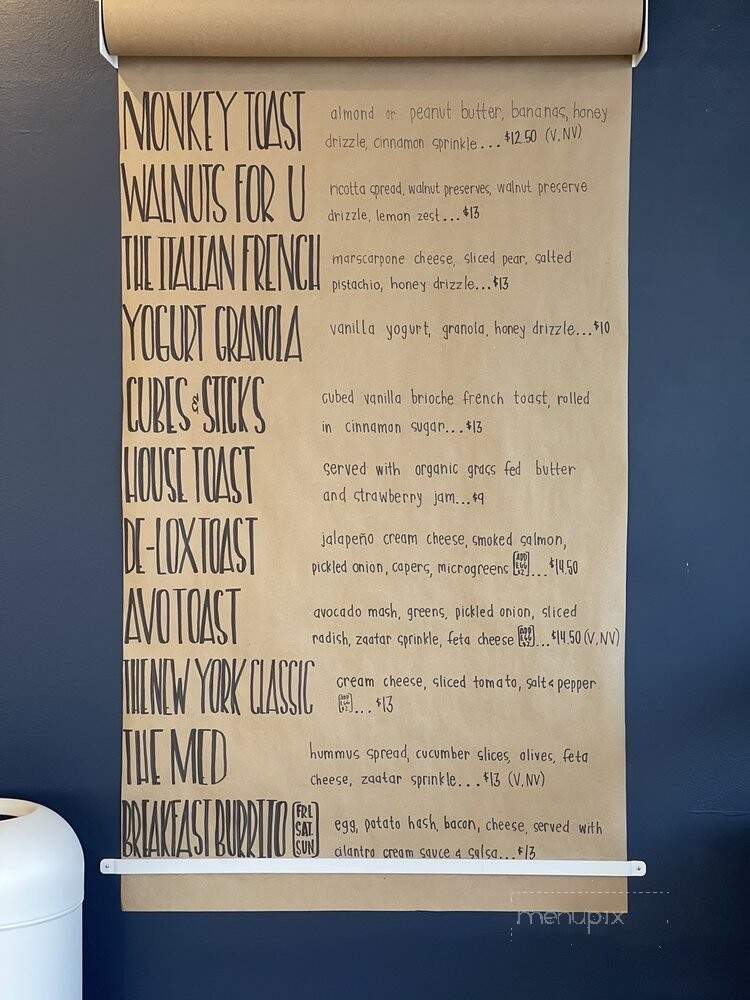 MONKEY TOAST almond or peanut butter, bananas, honey
drizzle, cinnamon sprinkle... $12.50 (V, NV)
WALNUTS FOR U ricotta spread, walnut preserves, walnut preserve
drizzle, lemon zest... $13
THE ITALIAN FRENCH marscarpone cheese, sliced pear, salted
pistachio, honey drizzle... $13
YOGURT GRANOLA vanilla yogurt, granola, honey drizzle... $10
CUBES & STICKS cubed vanilla brioche french toast, rolled
in cinnamon sugar... $13
HOUSE TOAST served with organic grass fed butter
and strawberry jam... $9
DE-LOX TOAST jalapeño cream cheese, smoked salmon,
pickled onion, capers, microgreens [ADD EGG $2] ... $14.50
AVO TOAST avocado mash, greens, pickled onion, sliced
radish, zaatar sprinkle, feta cheese [ADD EGG $2] ... $14.50 (V, NV)
THE NEW YORK CLASSIC cream cheese, sliced tomato, salt & pepper
[ADD EGG $2] ... $13
THE MED hummus spread, cucumber slices, olives, feta
cheese, zaatar sprinkle... $13 (V, NV)
BREAKFAST BURRITO [FRI. SAT. SUN] egg, potato hash, bacon, cheese, served with
cilantro cream sauce & salsa... $13
menupix